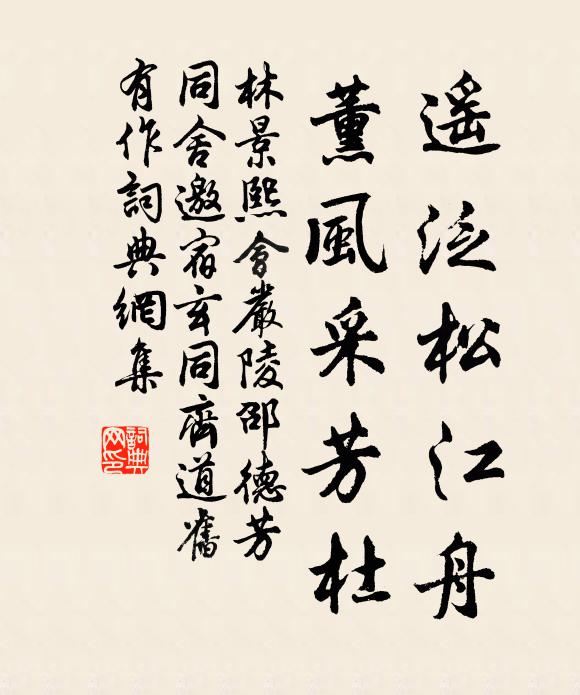 遥泛松江舟
薰風采芳杜
林景熙會嚴陵邵德芳
同舍邀宿玄同齋道舊
有作詞典網集
詞典
网印